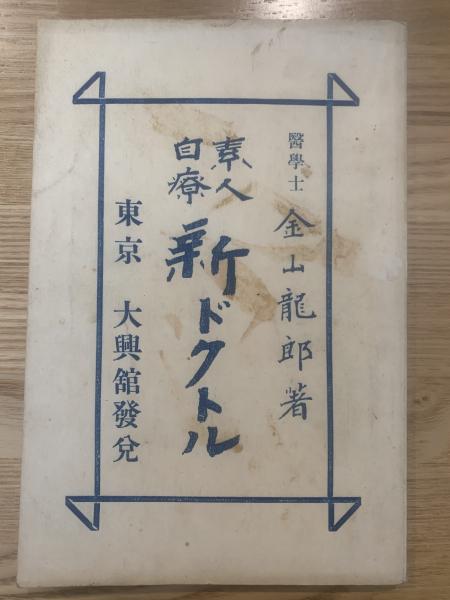 醫學士 金山龍郎著
素人
自療
新ドクトル
東京 大興舘發兌